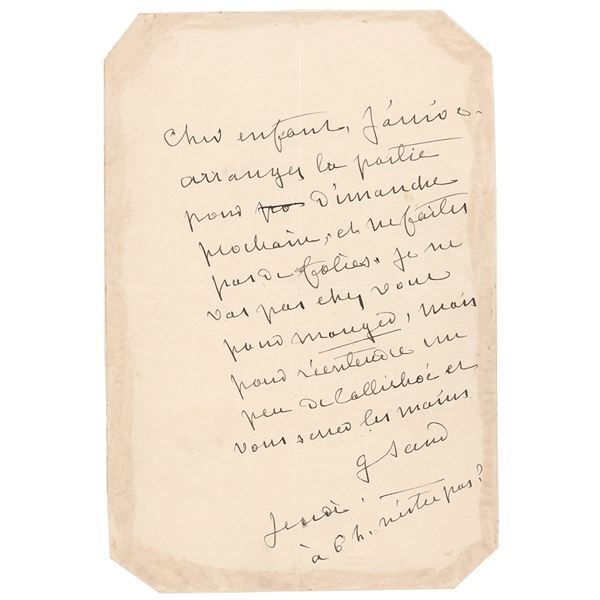 Cher enfant, J'arrive.
arrangez la partie
pour Dimanche
prochain, et ne faites
pas de folies. Je ne
vas pas chez vous
pour manger, mais
pour réentendre un
peu de Callirhoé et
vous serrer les mains
G Sand
Jeudi.
à 6 h. n'est ce pas?